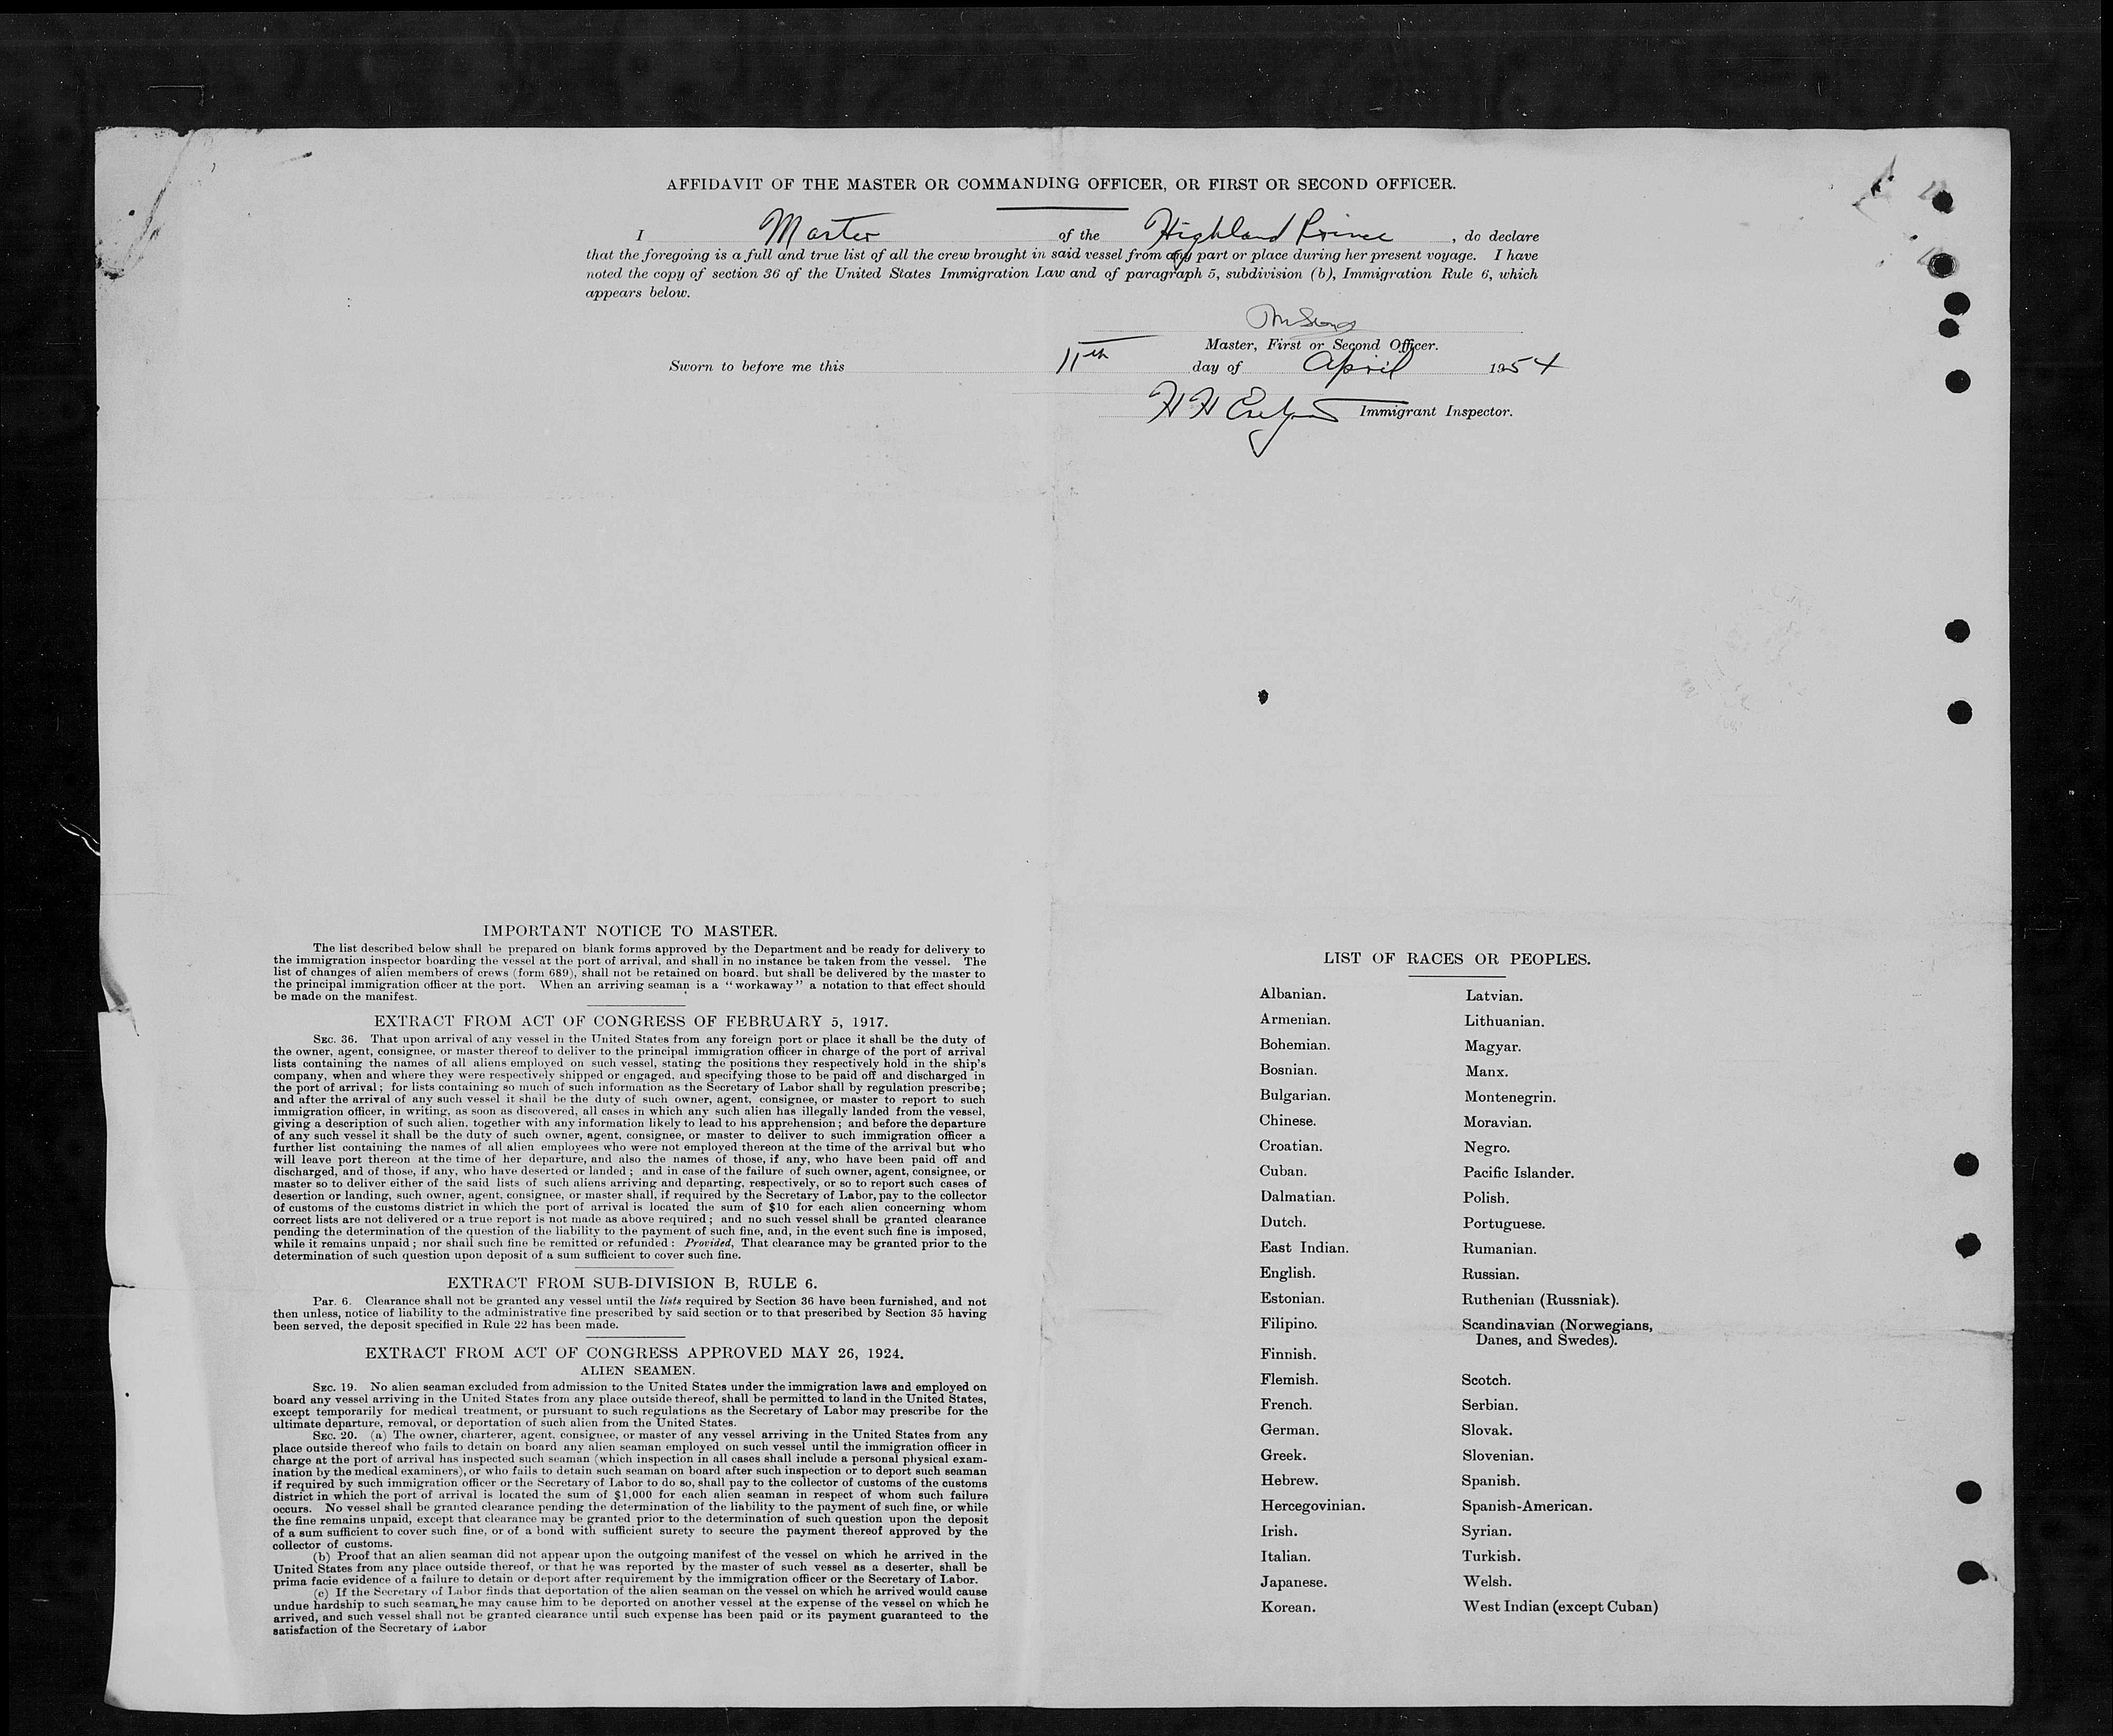 AFFIDAVIT OF THE MASTER OR COMMANDING OFFICER, OR FIRST OR SECOND OFFICER.
I Master of the Highland Prince, do declare
that the foregoing is a full and true list of all the crew brought in said vessel from any part or place during her present voyage. I have
noted the copy of section 36 of the United States Immigration Law and of paragraph 5, subdivision (b), Immigration Rule 6, which
appears below.
Master, First or Second Officer.
Sworn to before me this 11th day of April 1954
H H Immigrant Inspector.
IMPORTANT NOTICE TO MASTER.
The list described below shall be prepared on blank forms approved by the Department and be ready for delivery to
the immigration inspector boarding the vessel at the port of arrival, and shall in no instance be taken from the vessel. The
list of changes of alien members of crews (form 689), shall not be retained on board, but shall be delivered by the master to
the principal immigration officer at the port. When an arriving seaman is a "workaway" a notation to that effect should
be made on the manifest.
EXTRACT FROM ACT OF CONGRESS OF FEBRUARY 5, 1917.
SEC. 36. That upon arrival of any vessel in the United States from any foreign port or place it shall be the duty of
the owner, agent, consignee, or master thereof to deliver to the principal immigration officer in charge of the port of arrival
lists containing the names of all aliens employed on such vessel, stating the positions they respectively hold in the ship's
company, when and where they were respectively shipped or engaged, and specifying those to be paid off and discharged in
the port of arrival; for lists containing so much of such information as the Secretary of Labor shall by regulation prescribe;
and after the arrival of any such vessel it shall be the duty of such owner, agent, consignee, or master to report to such
immigration officer, in writing, as soon as discovered, all cases in which any such alien has illegally landed from the vessel,
giving a description of such alien, together with any information likely to lead to his apprehension; and before the departure
of any such vessel it shall be the duty of such owner, agent, consignee, or master to deliver to such immigration officer a
further list containing the names of all alien employees who were not employed thereon at the time of the arrival but who
will leave port thereon at the time of her departure, and also the names of those, if any, who have been paid off and
discharged, and of those, if any, who have deserted or landed; and in case of the failure of such owner, agent, consignee, or
master so to deliver either of the said lists of such aliens arriving and departing, respectively, or so to report such cases of
desertion or landing, such owner, agent, consignee, or master shall, if required by the Secretary of Labor, pay to the collector
of customs of the customs district in which the port of arrival is located the sum of $10 for each alien concerning whom
correct lists are not delivered or a true report is not made as above required; and no such vessel shall be granted clearance
pending the determination of the question of the liability to the payment of such fine, and, in the event such fine is imposed,
while it remains unpaid; nor shall such fine be remitted or refunded: Provided, That clearance may be granted prior to the
determination of such question upon deposit of a sum sufficient to cover such fine.
EXTRACT FROM SUB-DIVISION B, RULE 6.
Par. 6. Clearance shall not be granted any vessel until the lists required by Section 36 have been furnished, and not
then unless, notice of liability to the administrative fine prescribed by said section or to that prescribed by Section 35 having
been served, the deposit specified in Rule 22 has been made.
EXTRACT FROM ACT OF CONGRESS APPROVED MAY 26, 1924.
ALIEN SEAMEN.
SEC. 19. No alien seaman excluded from admission to the United States under the immigration laws and employed on
board any vessel arriving in the United States from any place outside thereof, shall be permitted to land in the United States,
except temporarily for medical treatment, or pursuant to such regulations as the Secretary of Labor may prescribe for the
ultimate departure, removal, or deportation of such alien from the United States.
SEC. 20. (a) The owner, charterer, agent, consignee, or master of any vessel arriving in the United States from any
place outside thereof who fails to detain on board any alien seaman employed on such vessel until the immigration officer in
charge at the port of arrival has inspected such seaman (which inspection in all cases shall include a personal physical exam-
ination by the medical examiners), or who fails to detain such seaman on board after such inspection or to deport such seaman
if required by such immigration officer or the Secretary of Labor to do so, shall pay to the collector of customs of the customs
district in which the port of arrival is located the sum of $1,000 for each alien seaman in respect of whom such failure
occurs. No vessel shall be granted clearance pending the determination of the liability to the payment of such fine, or while
the fine remains unpaid, except that clearance may be granted prior to the determination of such question upon the deposit
of a sum sufficient to cover such fine, or of a bond with sufficient surety to secure the payment thereof approved by the
collector of customs.
(b) Proof that an alien seaman did not appear upon the outgoing manifest of the vessel on which he arrived in the
United States from any place outside thereof, or that he was reported by the master of such vessel as a deserter, shall be
prima facie evidence of a failure to detain or deport after requirement by the immigration officer or the Secretary of Labor.
(c) If the Secretary of Labor finds that deportation of the alien seaman on the vessel on which he arrived would cause
undue hardship to such seaman, he may cause him to be deported on another vessel at the expense of the vessel on which he
arrived, and such vessel shall not be granted clearance until such expense has been paid or its payment guaranteed to the
satisfaction of the Secretary of Labor
LIST OF RACES OR PEOPLES.
Albanian.
Armenian.
Bohemian.
Bosnian.
Bulgarian.
Chinese.
Croatian.
Cuban.
Dalmatian.
Dutch.
East Indian.
English.
Estonian.
Filipino.
Finnish.
Flemish.
French.
German.
Greek.
Hebrew.
Hercegovinian.
Irish.
Italian.
Japanese.
Korean.
Latvian.
Lithuanian.
Magyar.
Manx.
Montenegrin.
Moravian.
Negro.
Pacific Islander.
Polish.
Portuguese.
Rumanian.
Russian.
Ruthenian (Russniak).
Scandinavian (Norwegians,
Danes, and Swedes).
Scotch.
Serbian.
Slovak.
Slovenian.
Spanish.
Spanish-American.
Syrian.
Turkish.
Welsh.
West Indian (except Cuban)